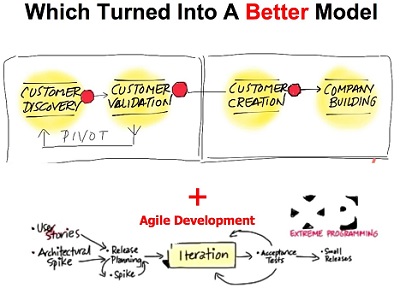 Which Turned Into A Better Model
CUSTOMER
DISCOVERY
CUSTOMER
VALIDATION
CUSTOMER
CREATION
COMPANY
BUILDING
PIVOT
+
Agile Development
XP
EXTREME PROGRAMMING
• User
Stories
• Architectural
Spike
• Release
Planning
• Spike
Iteration
• Acceptance
Tests
• Small
Releases